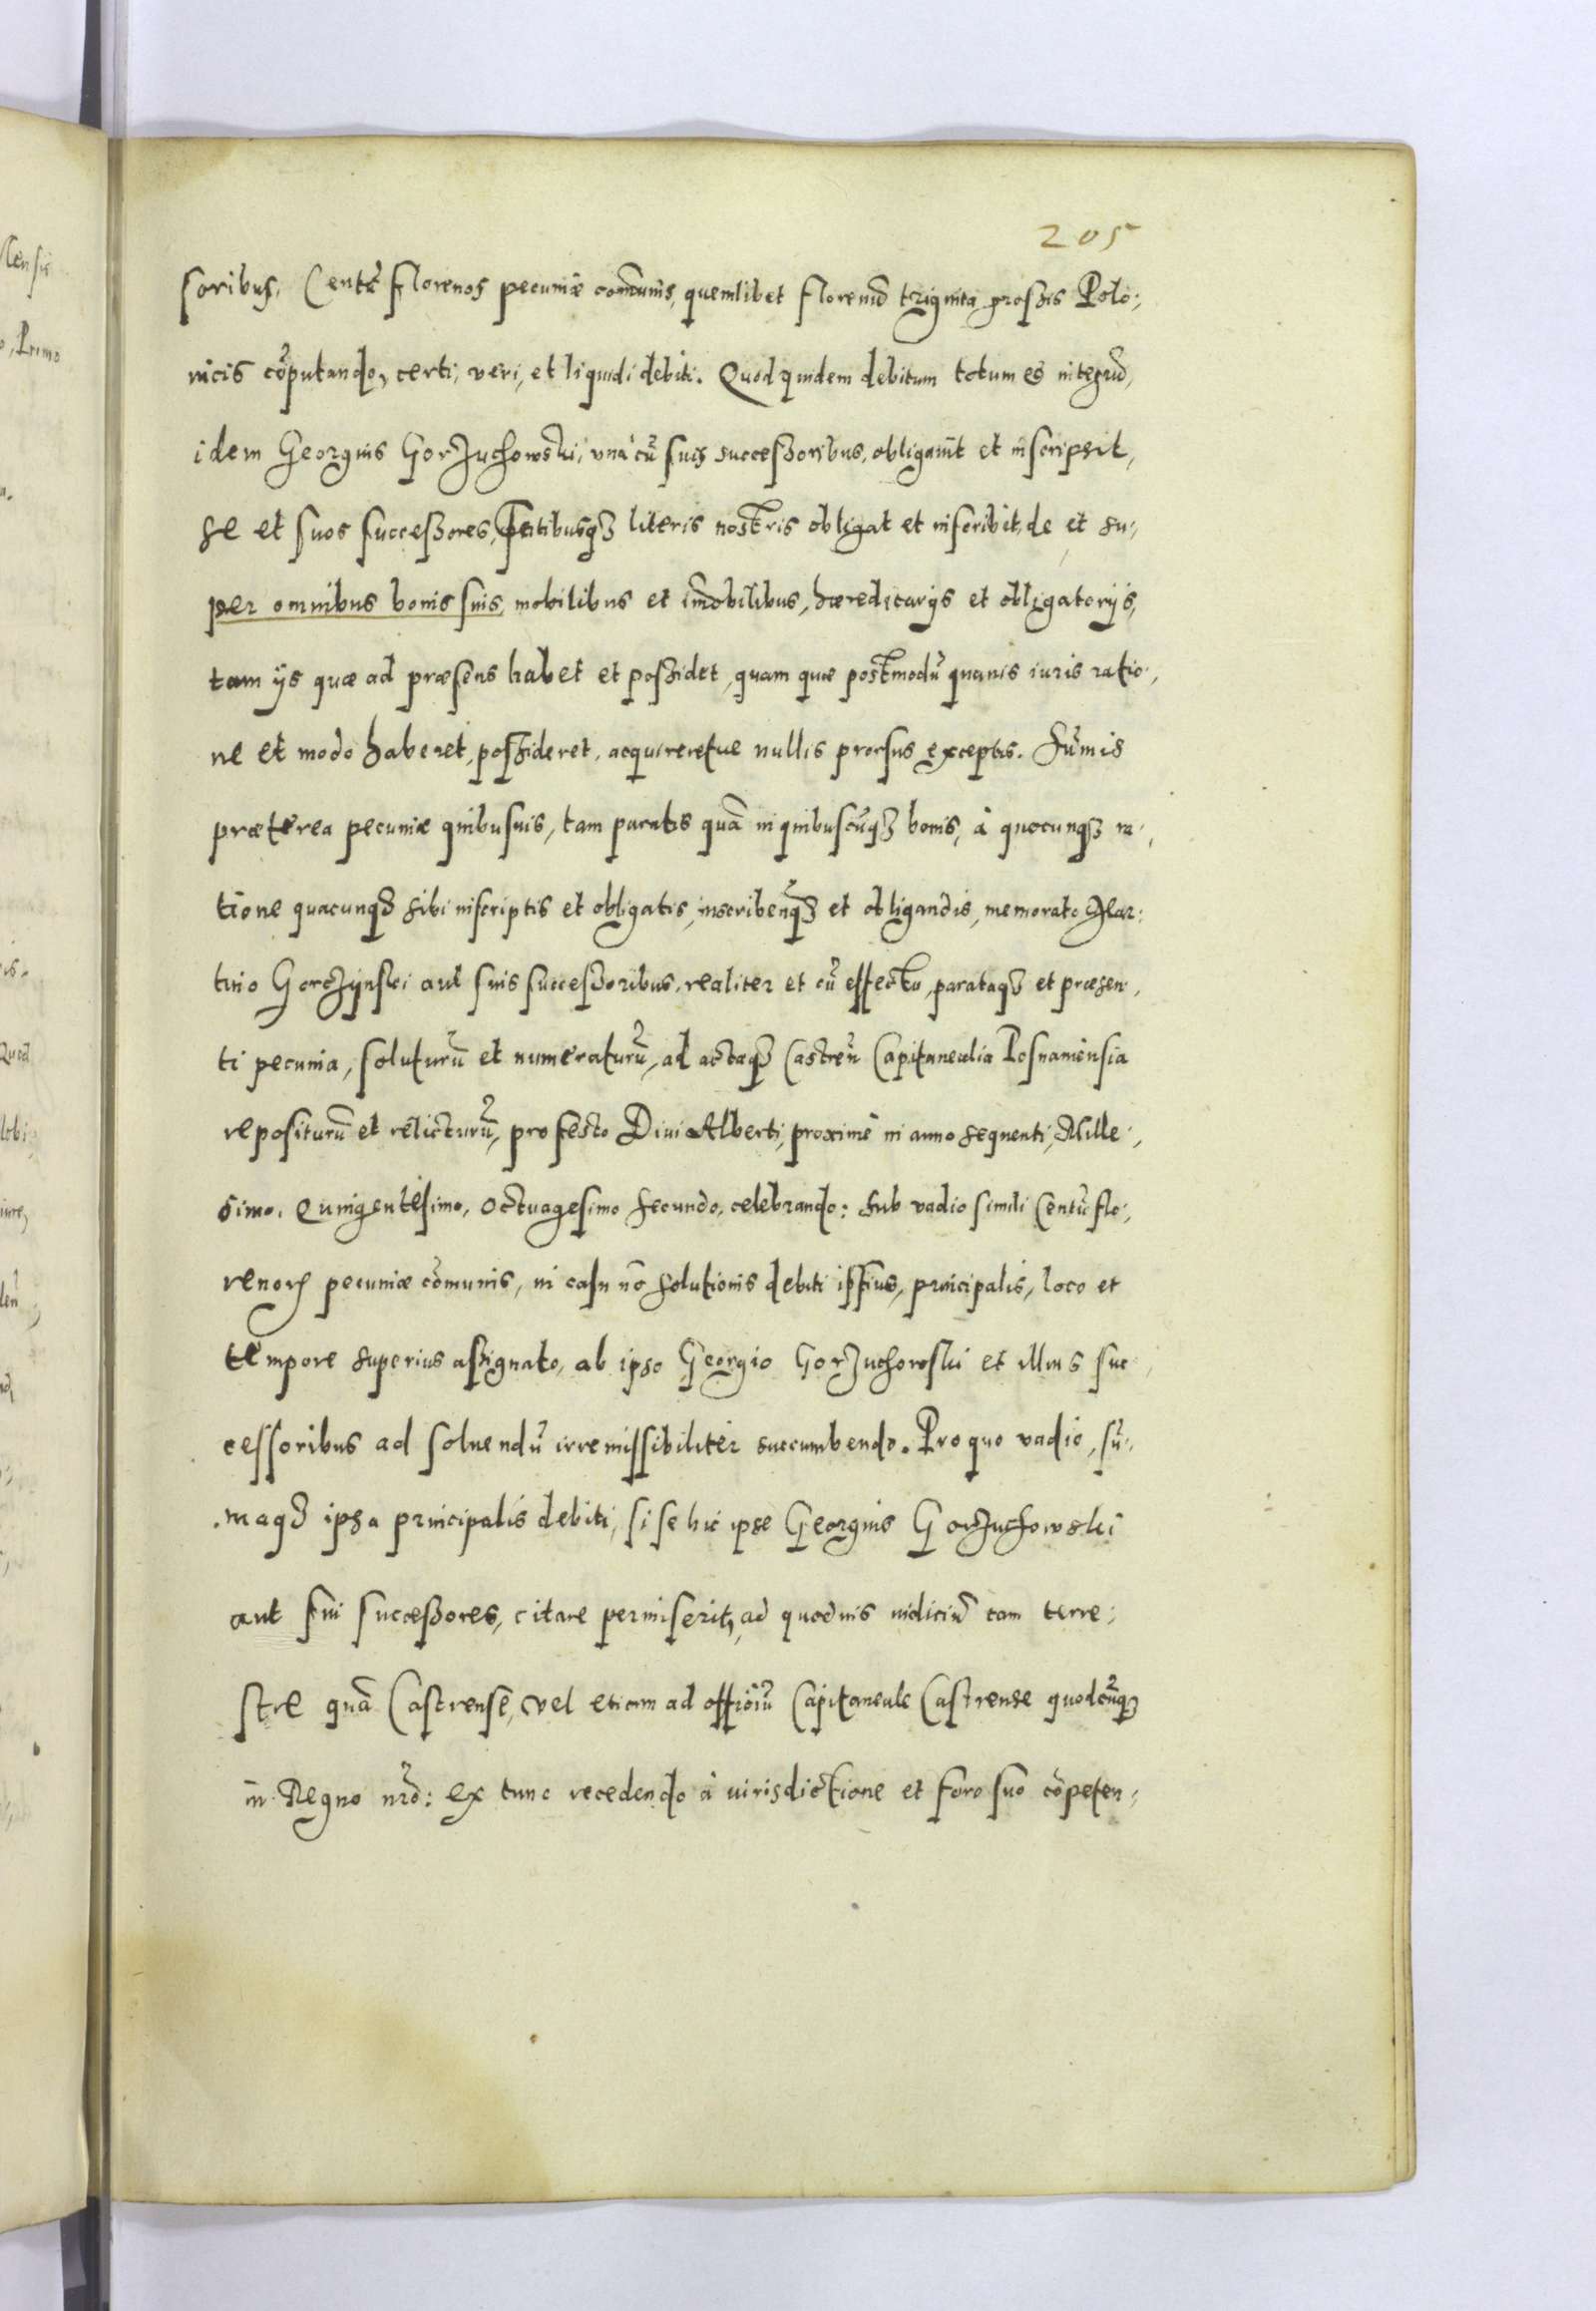 205
soribus, Centũ florenos pecuniæ com̃unis, quemlibet florenũ triginta grossis Polo:
nicis cõputando, certi, veri, et liquidi debiti. Quod quidem debitum totum et integrũ,
idem Georgius Gorzuchowski, unà cũ suis successoribus, obligauit et inscripsit,
se et suos successores, p̃ntibusq3 literis nostris obligat et inscribit, de et su:
per omnibus bonis suis, mobilibus et im̃obilibus, hæreditarijs et obligatorijs,
tam ijs quæ ad præsens habet et possidet, quam quæ postmodũ quauis iuris ratio:
ne et modo haberet, possideret, acquireretue nullis prorsus exceptis. Sum̃is
præterea pecuniæ quibusuis, tam paratis quã in quibuscũq3 bonis, à quocunq3 ra:
tione quacunq3 sibi inscriptis et obligatis, inscribenq3 et obligandis, memorato Mar:
tino Gorczÿnski aut suis successoribus, realiter et cũ effectu, parataq3 et præsen:
ti pecunia, soluturũ et numeraturũ, ad actaq3 Castreñ Capitanealia Posnaniensia
repositurũ et relicturũ, pro festo Diui Alberti, proximè in anno sequenti, Mille:
simo, Quingentesimo, Octuagesimo secundo, celebrando: sub vadio simili Centũ flo:
renorꝝ pecuniæ cõmunis, in casu nõ solutionis debiti istius, principalis, loco et
tempore superius assignato, ab ipso Georgio Gorzuchowski et illius suc:
cessoribus ad soluendũ irremissibiliter succumbendo. Pro quo vadio, sũ:
maq3 ipsa principalis debiti, si se hic ipse Georgius Gorzuchowski
aut sui successores, citare permiserit, ad quoduis iudiciũ tam terre:
stre quã Castrense, vel etiam ad officiũ Capitaneale Castrense quodcũq3
in Regno nr̃o: ex tunc recedendo à iurisdictione et foro suo cõpeten: